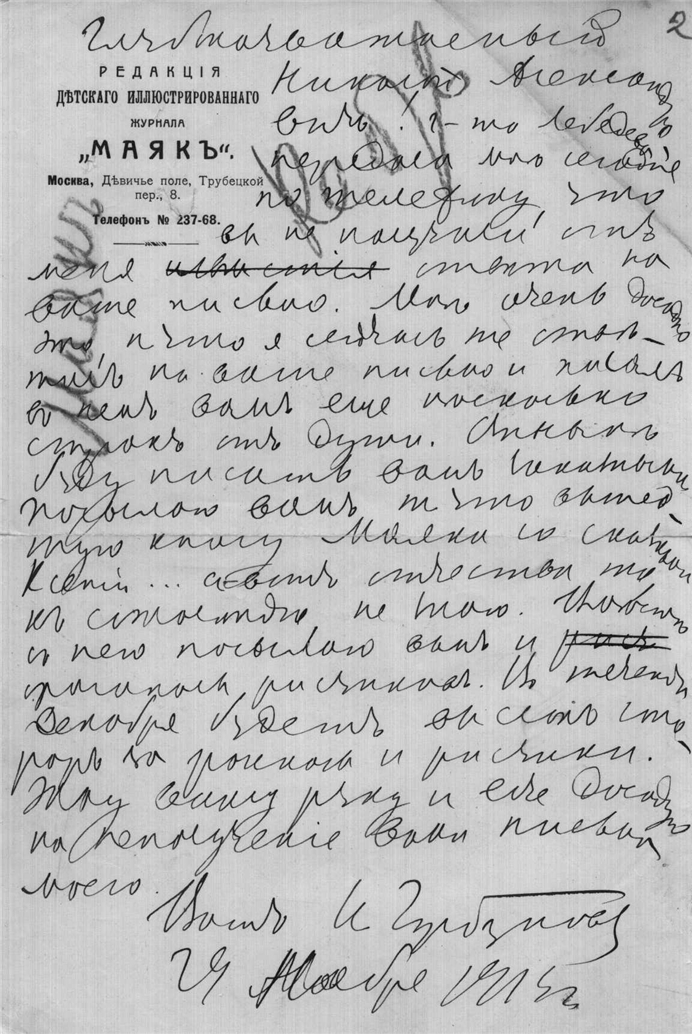 2
Глубокоуважаемый
РЕДАКЦІЯ
ДѢТСКАГО ИЛЛЮСТРИРОВАННАГО
ЖУРНАЛА
„МАЯКЪ“.
Москва, Дѣвичье поле, Трубецкой
пер., 8.
Телефонъ № 237-68.
Маякъ
Николай Александро
вичъ! Г-жа Лебедева
передала мнѣ сегодня
по телефону, что
вы не получили отъ
меня извѣстія отвѣта на
ваше письмо. Мнѣ очень досадно
это, и что я сейчасъ же отвѣ-
тилъ на ваше письмо и писалъ
въ немъ вамъ еще нѣсколько
строкъ отъ души.
буду писать вамъ заказными
посылаю вамъ вышед-
шую книгу Маяка со сказкой
Ксеніи ... отчества
къ сожалѣнію не знаю. Вмѣстѣ
съ нею посылаю вамъ и
оригиналы рисунковъ. Въ теченіи
Декабря будетъ высланъ гоно-
раръ за рисунки.
Жму вашу руку и еще досадую
на неполученіе вами письма
моего.
Вашъ И Горбуновъ
24 Ноября 1915 г.